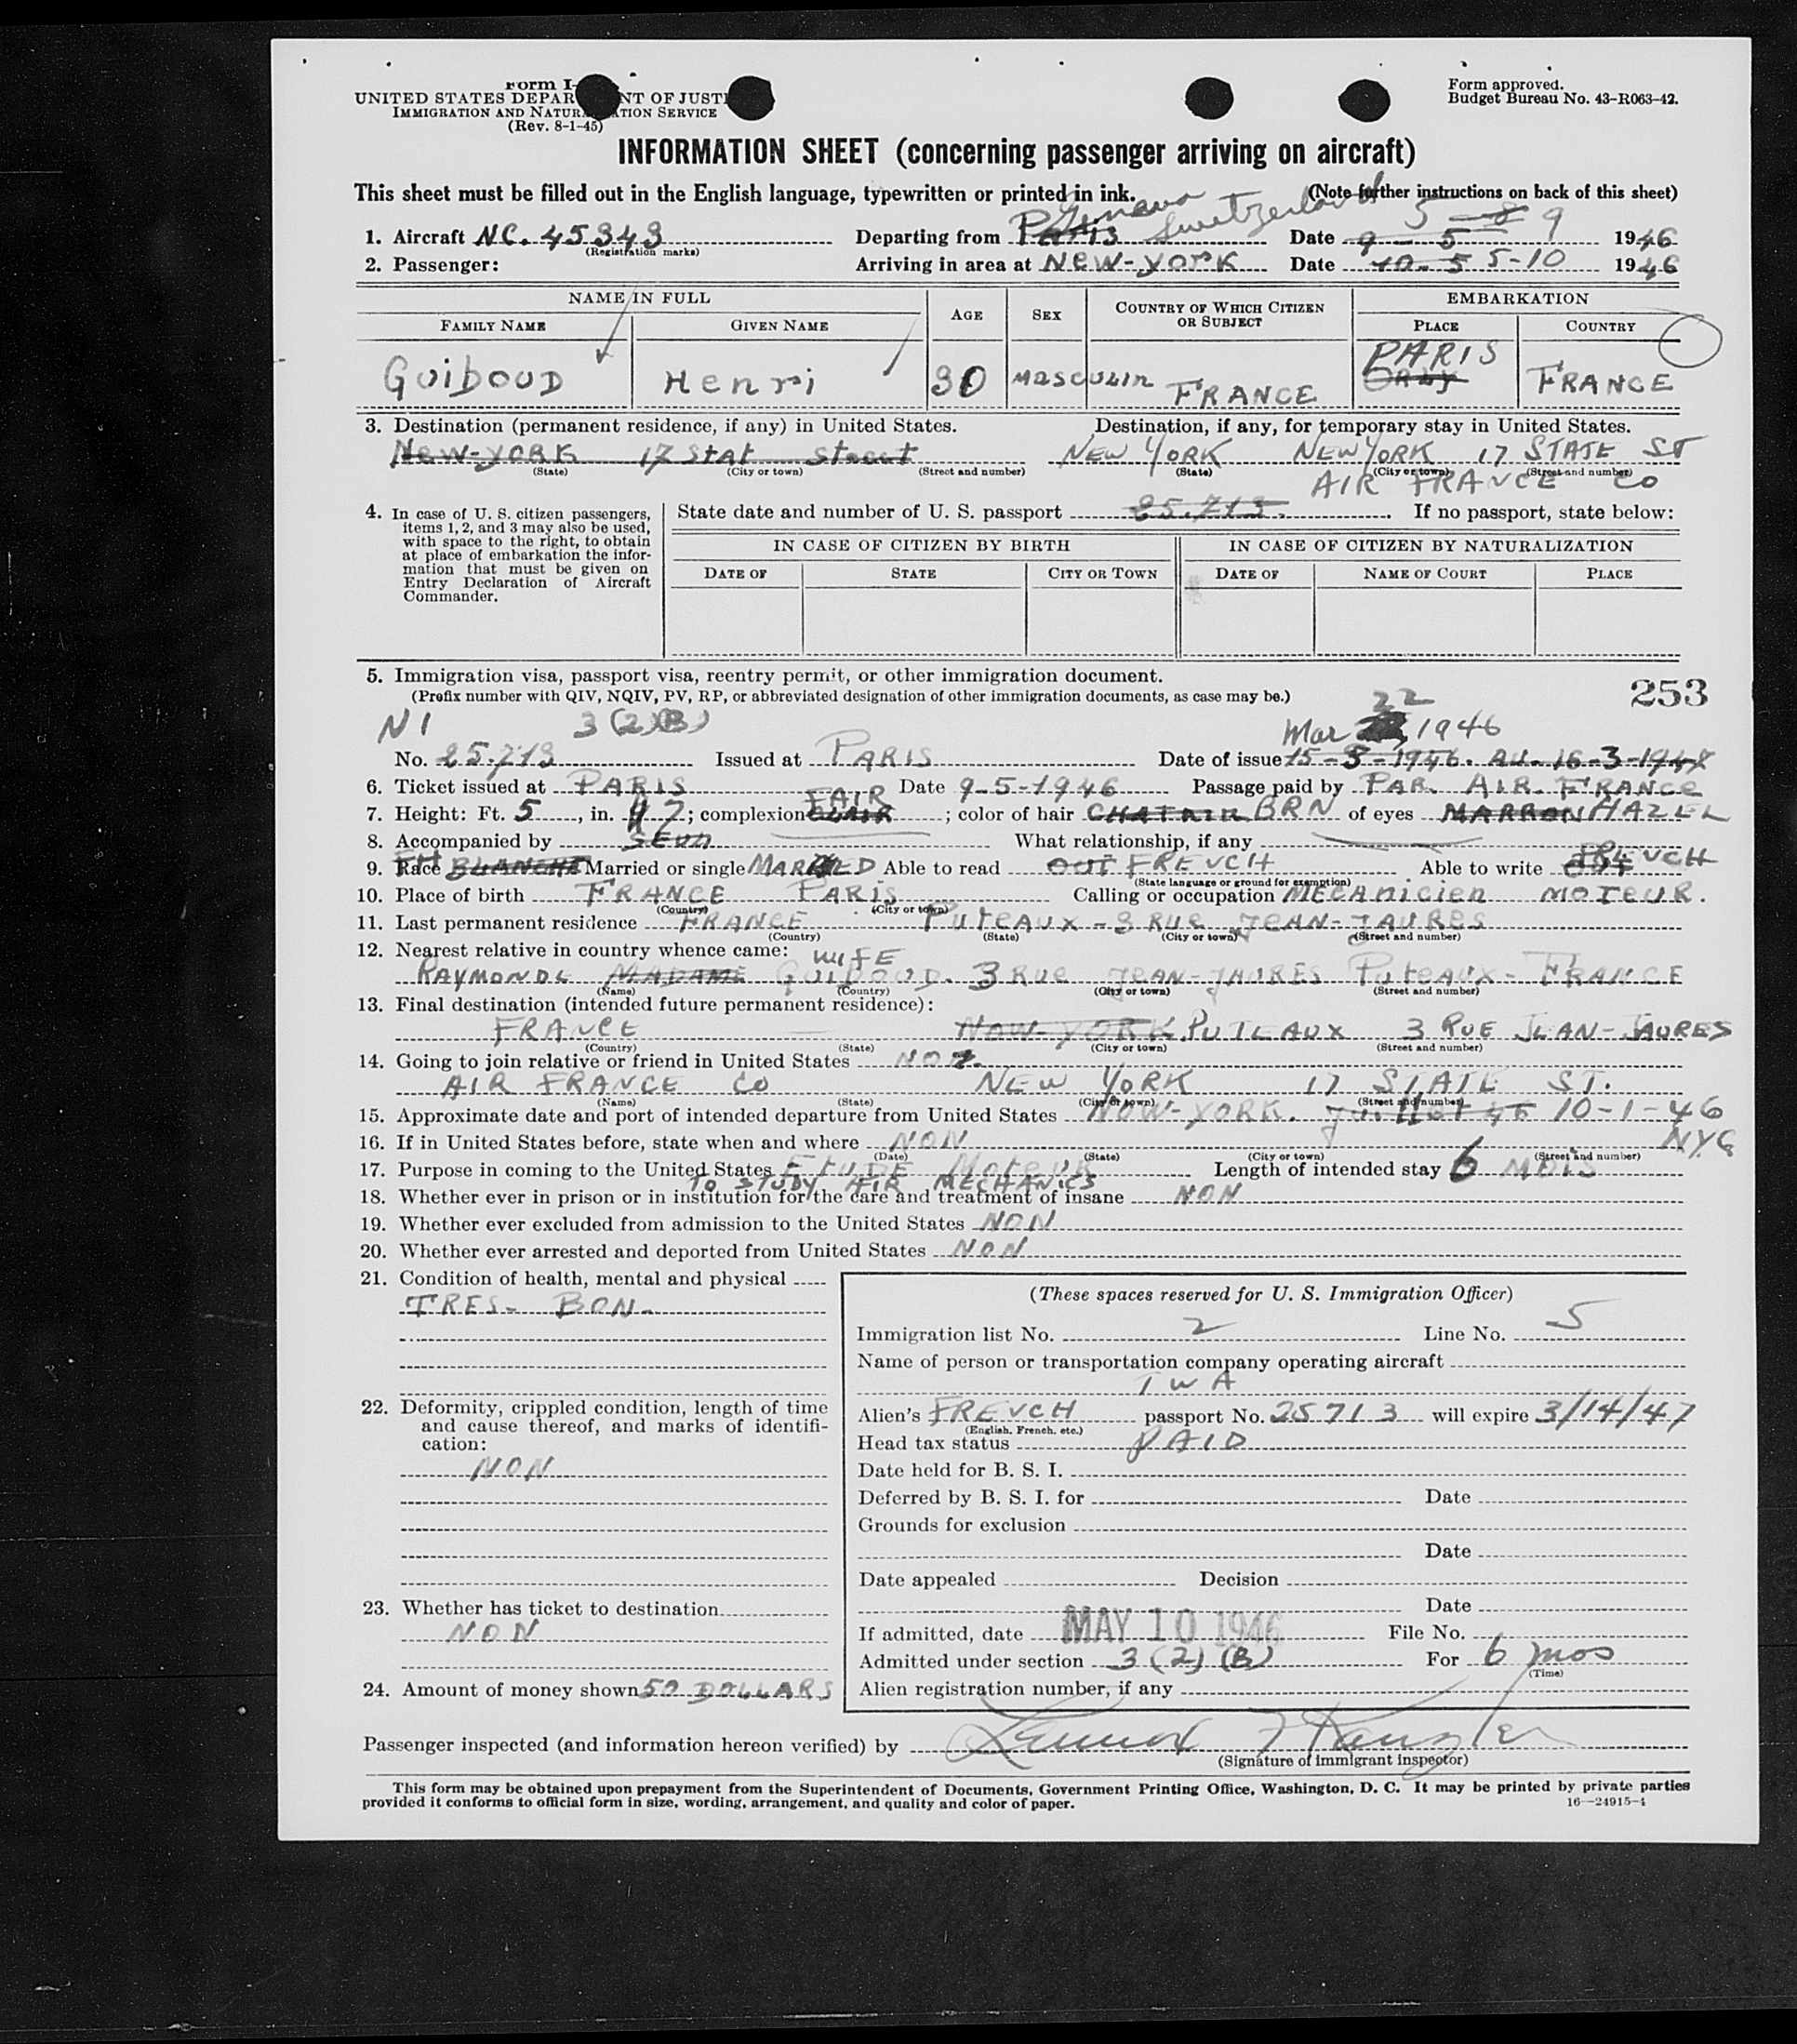 Form I-
UNITED STATES DEPAR NT OF JUSTI
IMMIGRATION AND NATUR TION SERVICE
(Rev. 8-1-45)
Form approved.
Budget Bureau No. 43-R063-42.
INFORMATION SHEET (concerning passenger arriving on aircraft)
This sheet must be filled out in the English language, typewritten or printed in ink. (Note further instructions on back of this sheet)
Geneva Switzerland
1. Aircraft NC. 45343 Departing from PARIS Date 9 - 5 5 - 8 9 1946
(Registration marks)
2. Passenger: Arriving in area at New-York Date 10-5 5-10 1946
NAME IN FULL AGE SEX COUNTRY OF WHICH CITIZEN OR SUBJECT EMBARKATION
FAMILY NAME GIVEN NAME PLACE COUNTRY
PARIS
GUIBOUD Henri 30 MASCULIN FRANCE ORLY FRANCE
3. Destination (permanent residence, if any) in United States. Destination, if any, for temporary stay in United States.
New-YORK 17 Stat Street NEW YORK NEW YORK 17 STATE ST
(State) (City or town) (Street and number) (State) (City or town) (Street and number)
AIR FRANCE CO
4. In case of U. S. citizen passengers, items 1, 2, and 3 may also be used, with space to the right, to obtain at place of embarkation the information that must be given on Entry Declaration of Aircraft Commander.
State date and number of U. S. passport 25.713. If no passport, state below:
IN CASE OF CITIZEN BY BIRTH IN CASE OF CITIZEN BY NATURALIZATION
DATE OF STATE CITY OR TOWN DATE OF NAME OF COURT PLACE
5. Immigration visa, passport visa, reentry permit, or other immigration document.
(Prefix number with QIV, NQIV, PV, RP, or abbreviated designation of other immigration documents, as case may be.)
253
NI 3(2)(B) Mar 22, 1946
No. 25.713 Issued at PARIS Date of issue 15-3-1946. AU. 16-3-1947
6. Ticket issued at PARIS Date 9-5-1946 Passage paid by PAR. AIR. FRANCE
7. Height: Ft. 5, in. 7; complexion CLAIR FAIR; color of hair CHATAIN BRN of eyes MARRON HAZEL
8. Accompanied by SEUL What relationship, if any
9. Race BLANCHE FH Married or single MARRIED Able to read OUI FRENCH Able to write OUI FRENCH
(State language or ground for exemption)
10. Place of birth FRANCE PARIS Calling or occupation MECANICIEN MOTEUR.
(Country) (City or town)
11. Last permanent residence FRANCE PUTEAUX - 3 RUE JEAN-JAURES
(Country) (State) (City or town) (Street and number)
12. Nearest relative in country whence came: WIFE
RAYMONDE MADAME GUIBOUD. 3 RUE JEAN-JAURES PUTEAUX - FRANCE
(Name) (Country) (City or town) (Street and number)
13. Final destination (intended future permanent residence):
FRANCE NEW-YORK PUTEAUX 3 RUE JEAN-JAURES
(Country) (State) (City or town) (Street and number)
14. Going to join relative or friend in United States NON.
AIR FRANCE CO NEW YORK 17 STATE ST.
(Name) (State) (City or town) (Street and number)
15. Approximate date and port of intended departure from United States NEW-YORK. 10-1-46
NYC
16. If in United States before, state when and where NON
(Date) (State) (City or town) (Street and number)
17. Purpose in coming to the United States ETUDE MOTEUR Length of intended stay 6 MOIS
TO STUDY AIR MECHANICS
18. Whether ever in prison or in institution for the care and treatment of insane NON
19. Whether ever excluded from admission to the United States NON
20. Whether ever arrested and deported from United States NON
21. Condition of health, mental and physical
TRES- BON-
22. Deformity, crippled condition, length of time and cause thereof, and marks of identification:
NON
23. Whether has ticket to destination
NON
24. Amount of money shown 50 DOLLARS
(These spaces reserved for U. S. Immigration Officer)
Immigration list No. 2 Line No. 5
Name of person or transportation company operating aircraft
TWA
Alien's FRENCH passport No. 25713 will expire 3/14/47
(English, French, etc.)
Head tax status PAID
Date held for B. S. I.
Deferred by B. S. I. for Date
Grounds for exclusion
Date
Date appealed Decision
Date
If admitted, date MAY 10 1946 File No.
Admitted under section 3(2)(B) For 6 mos
(Time)
Alien registration number, if any
Passenger inspected (and information hereon verified) by
(Signature of immigrant inspector)
This form may be obtained upon prepayment from the Superintendent of Documents, Government Printing Office, Washington, D. C. It may be printed by private parties
provided it conforms to official form in size, wording, arrangement, and quality and color of paper.
16—24915-4